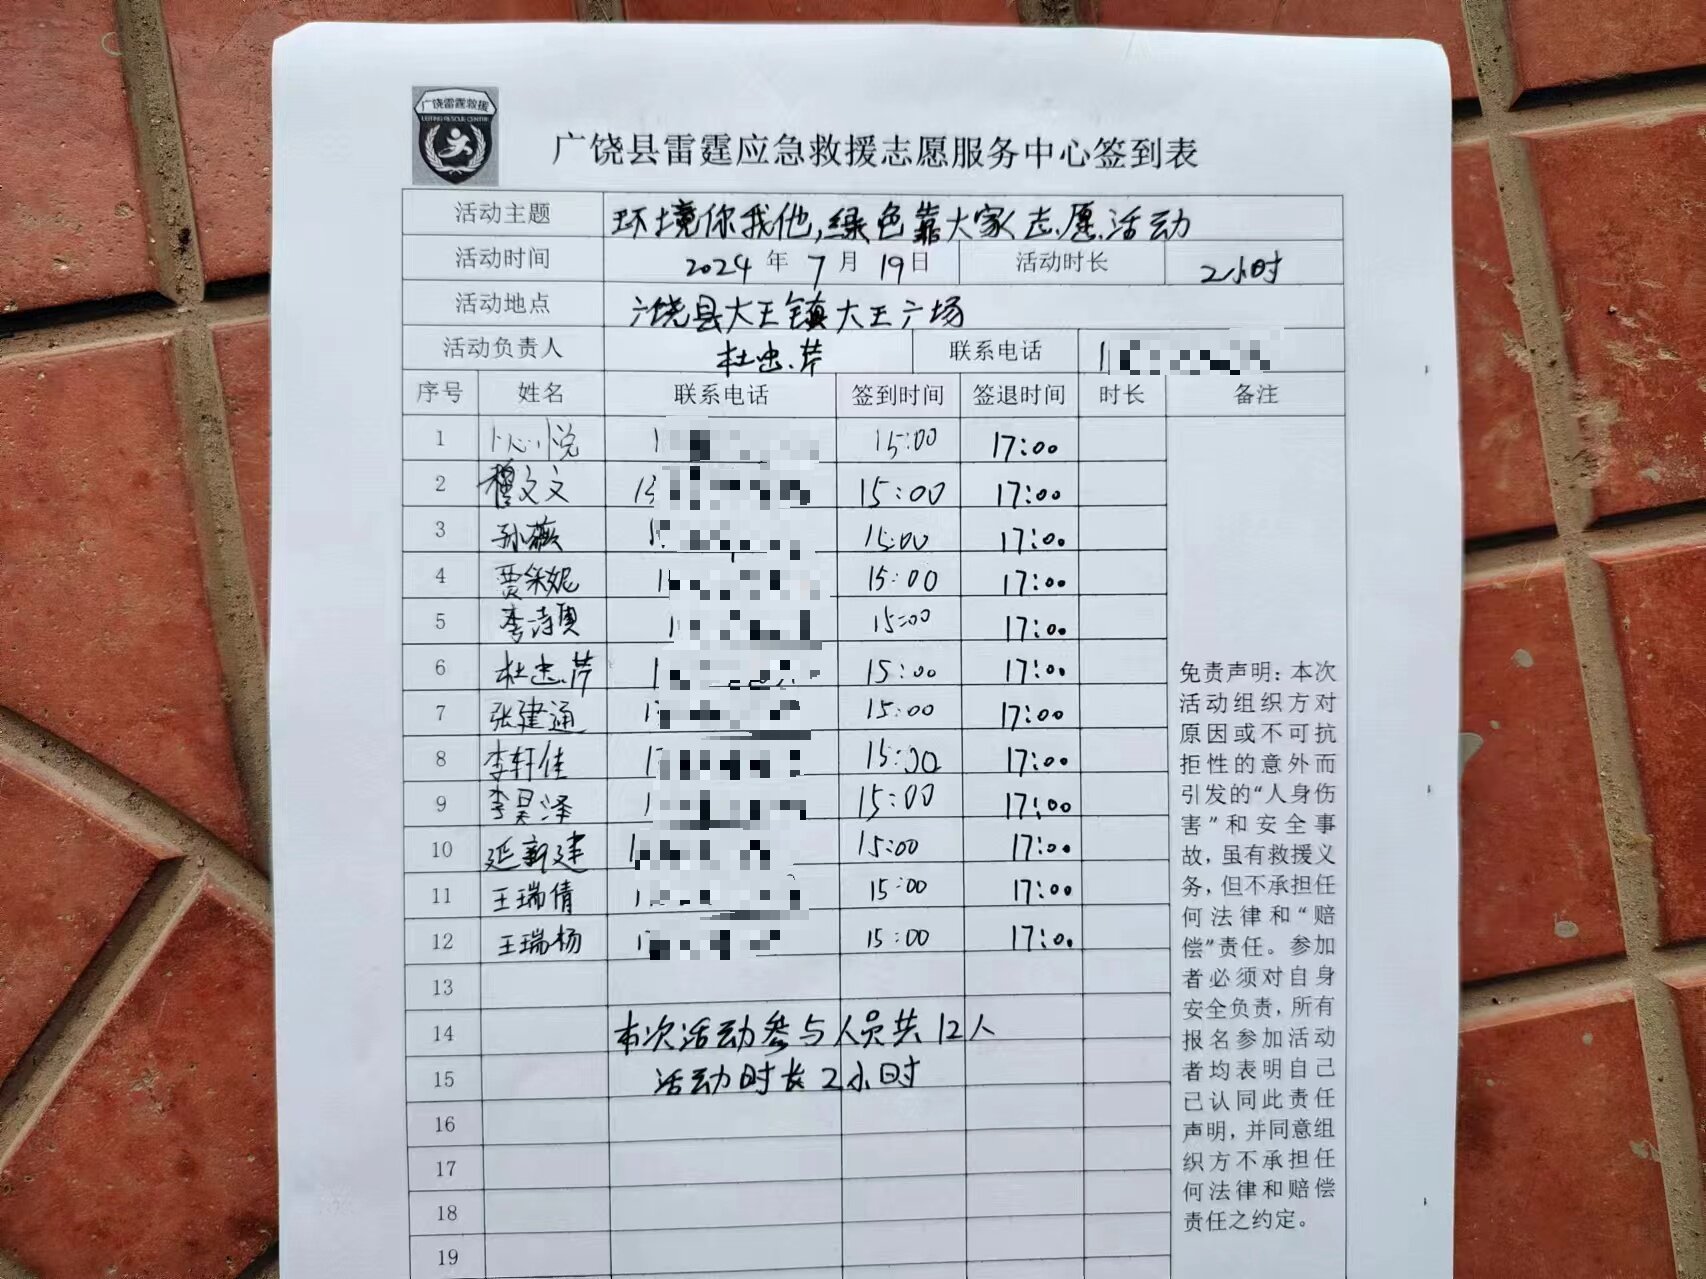 广饶雷霆救援
LEITING RESCUE CENTRE
广饶县雷霆应急救援志愿服务中心签到表
活动主题 环境你我他,绿色靠大家志愿活动
活动时间 2024 年 7 月 19 日 活动时长 2小时
活动地点 广饶县大王镇大王广场
活动负责人 杜忠芹 联系电话 1
序号 姓名 联系电话 签到时间 签退时间 时长 备注
1 悦 1 15:00 17:00
2 穆文文 13 15:00 17:00
3 孙薇 1 15:00 17:00
4 贾保妮 1 15:00 17:00
5 李诗奥 1 15:00 17:00
6 杜忠芹 1 15:00 17:00
7 张建通 1 15:00 17:00
8 李轩佳 1 15:00 17:00
9 李昊泽 1 15:00 17:00
10 延新建 1 15:00 17:00
11 王瑞倩 1 15:00 17:00
12 王瑞杨 1 15:00 17:00
13
14 本次活动参与人员共12人
15 活动时长2小时
16
17
18
19
免责声明：本次
活动组织方对
原因或不可抗
拒性的意外而
引发的“人身伤
害”和安全事
故，虽有救援义
务，但不承担任
何法律和“赔
偿”责任。参加
者必须对自身
安全负责，所有
报名参加活动
者均表明自己
已认同此责任
声明，并同意组
织方不承担任
何法律和赔偿
责任之约定。